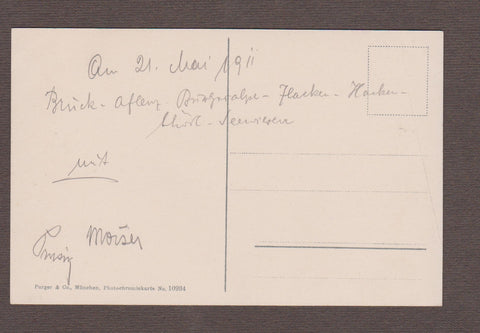 Am 21. Mai 1911
Bruck - Aflenz - Bürgeralpe - Flacken - Hacken -
Thörl - Seewiesen
mit
Moiser
Purger & Co., München, Photochromiekarte No. 10994